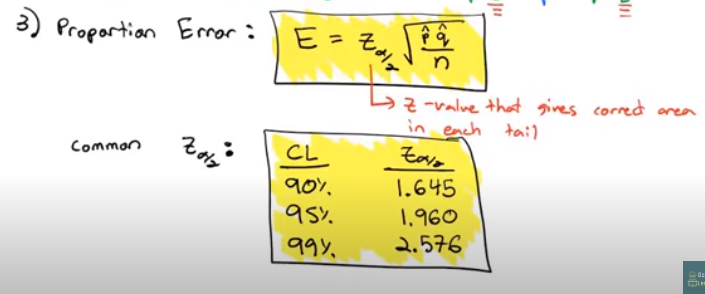 3) Proportion Error: E = z_{α/2} √(p̂ q̂ / n)
z-value that gives correct area
in each tail
Common z_{α/2}:
CL z_{α/2}
90% 1.645
95% 1.960
99% 2.576